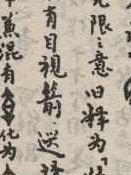 无限之意旧释为
有目視箭送
混有
化为